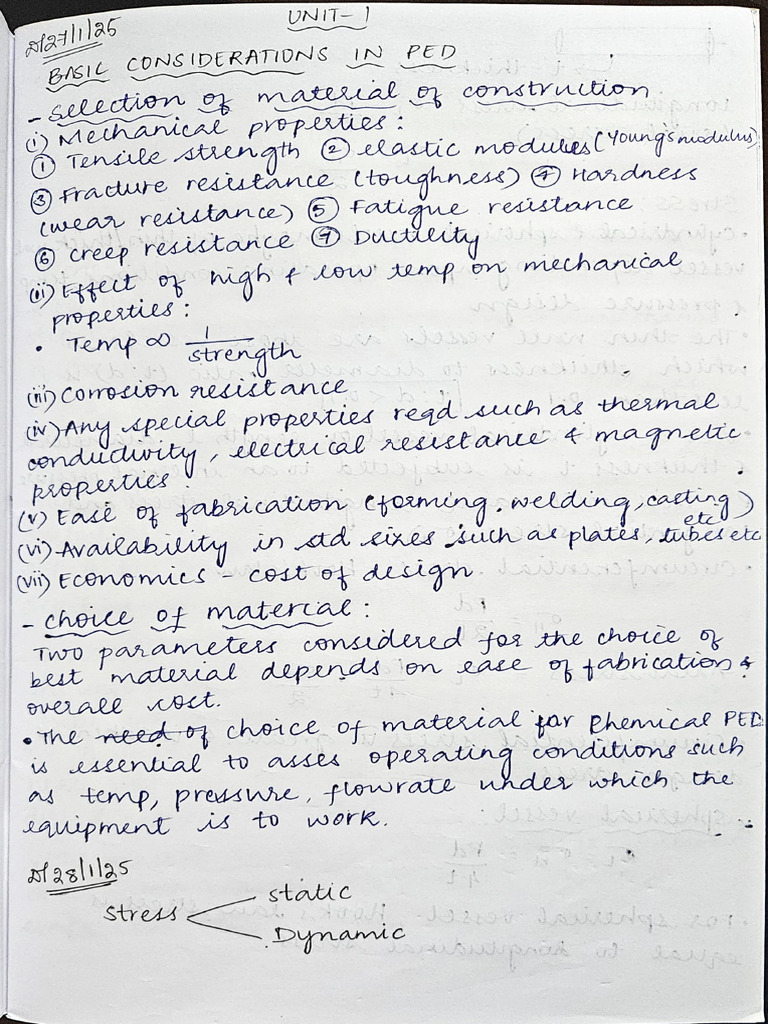 UNIT-1
D/27/1/25
BASIC CONSIDERATIONS IN PED
- selection of material of construction
(i) Mechanical properties:
① Tensile strength ② elastic modulus (Young's modulus)
③ Fracture resistance (toughness) ④ Hardness
(wear resistance) ⑤ Fatigue resistance
⑥ creep resistance ⑦ Ductility
(ii) Effect of high & low temp on mechanical
properties:
• Temp ∞ 1/strength
(iii) Corrosion resistance
(iv) Any special properties reqd such as thermal
conductivity, electrical resistance & magnetic
properties.
(v) Ease of fabrication (forming, welding, casting)
etc
(vi) Availability in std sizes such as plates, tubes etc
(vii) Economics - cost of design
- choice of material:
Two parameters considered for the choice of
best material depends on ease of fabrication &
overall cost.
• The need of choice of material for Chemical PED
is essential to asses operating conditions such
as temp, pressure, flowrate under which the
equipment is to work.
D/28/1/25
static
stress
Dynamic